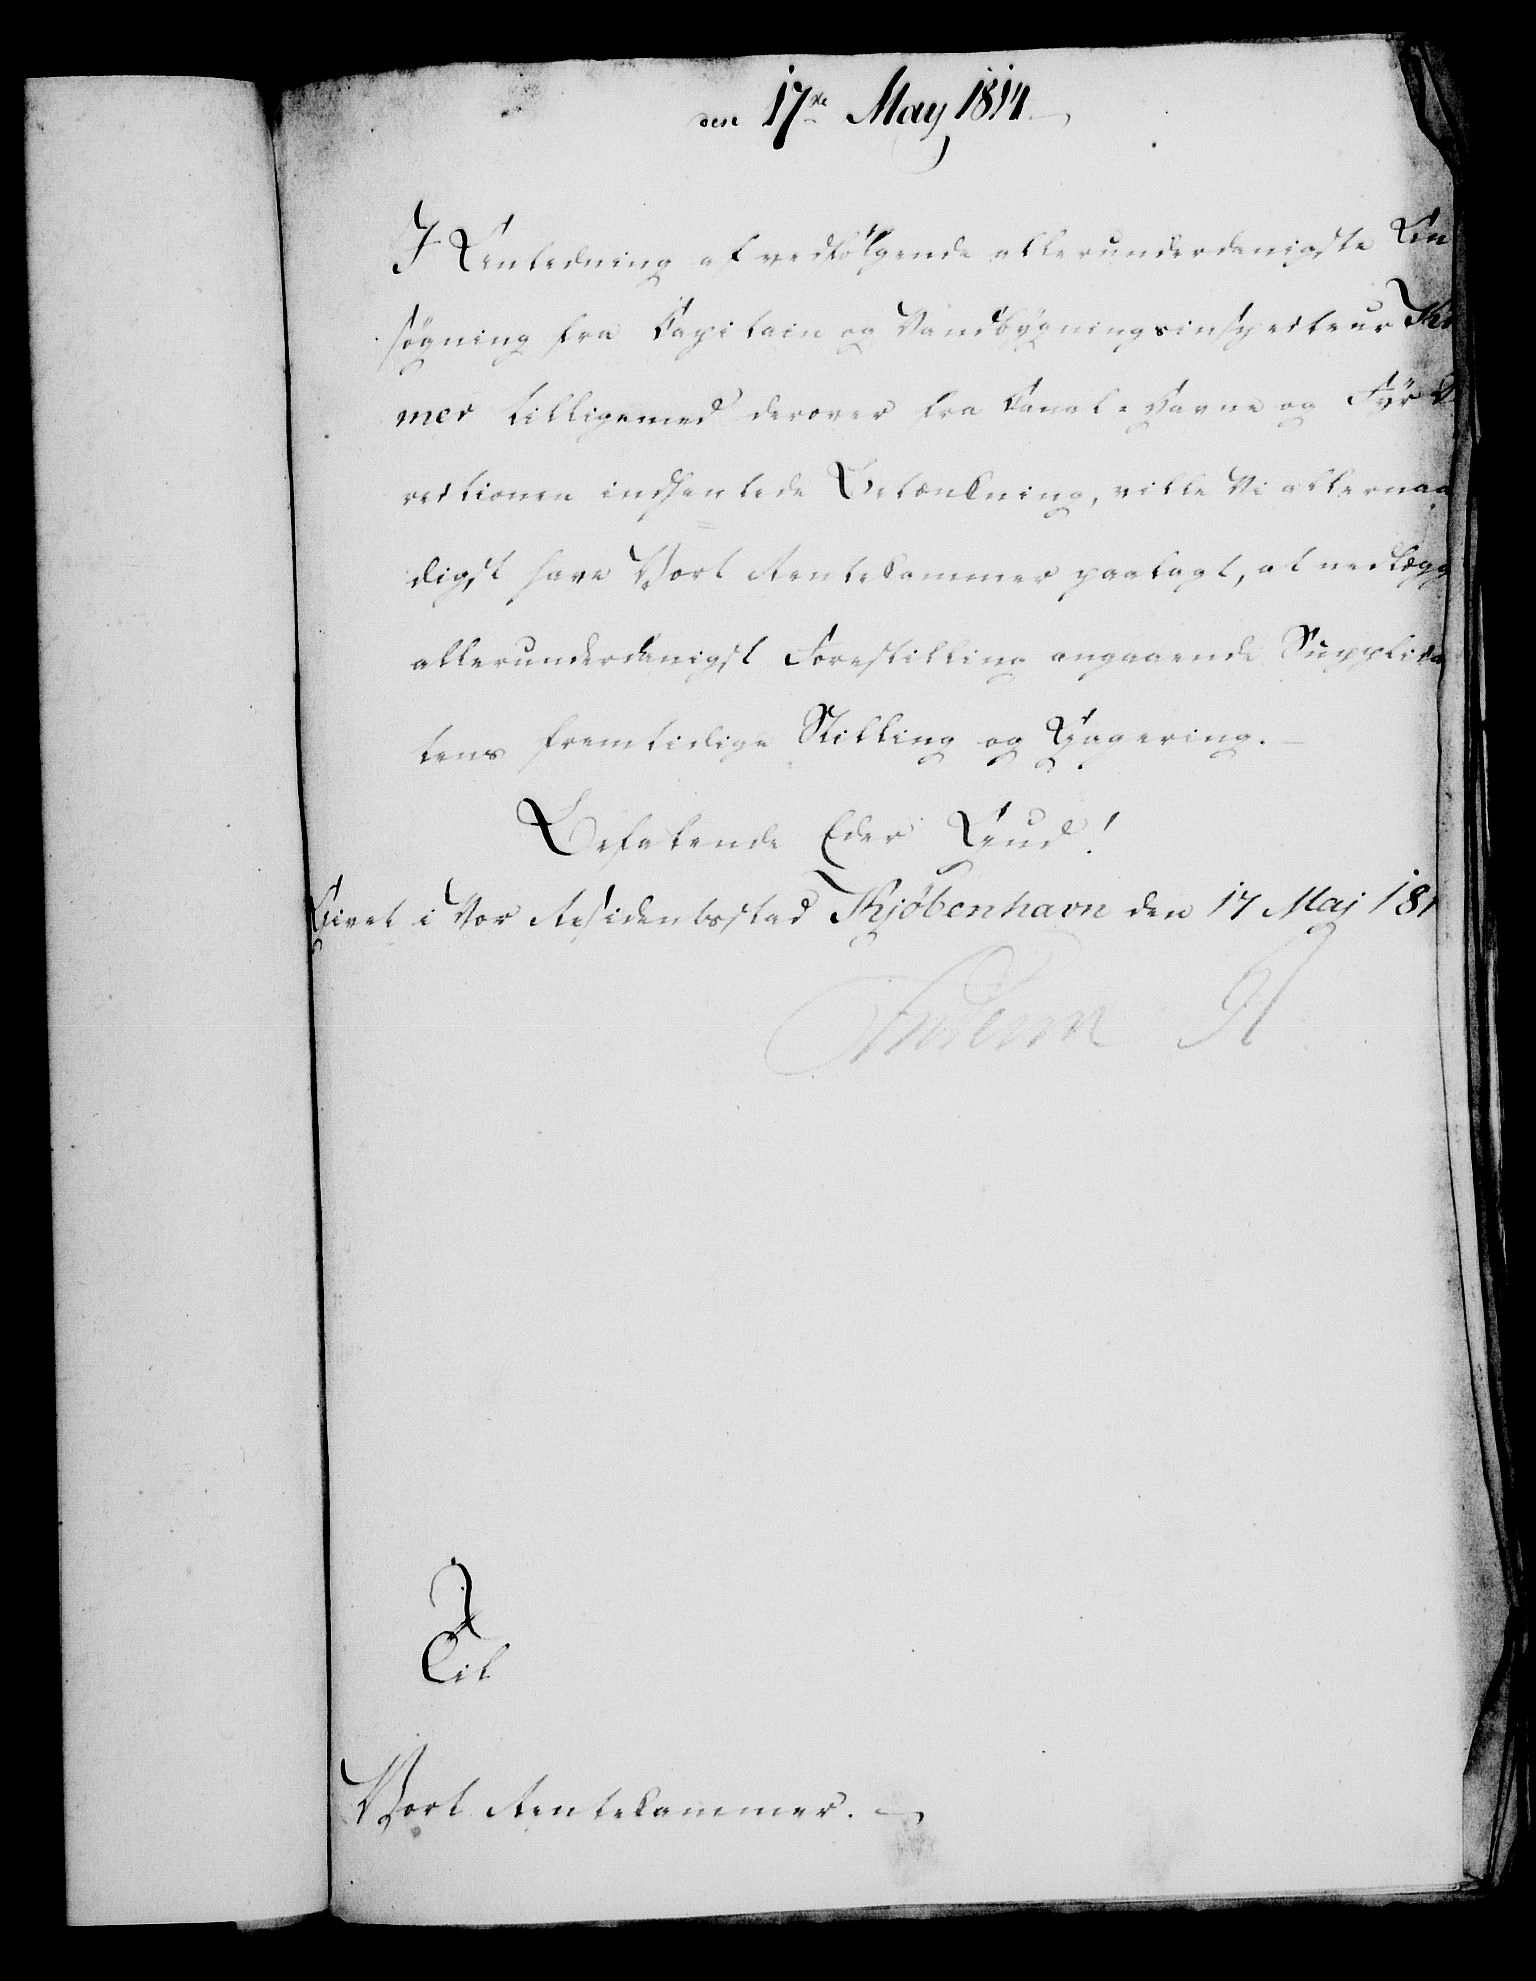 den 17de May 1814.
I Anledning af vedfølgende allerunderdanigste An
søgning fra Capitain og Vandbygningsinspecteur
mer tilligemed derover fra Canal- Havne og Fyr D
rectionen indhentede Betænkning, ville Vi allernaa
digst have Vort Rentekammer paalagt, at nedlægg
allerunderdanigst Forestilling angaaende Supplica
tens fremtidige Stilling og Gagering. —
Befalende Eder Gud!
Givet i Vor Residentsstad Kjøbenhavn den 17 Maj 181
Til
Vort Rentekammer.